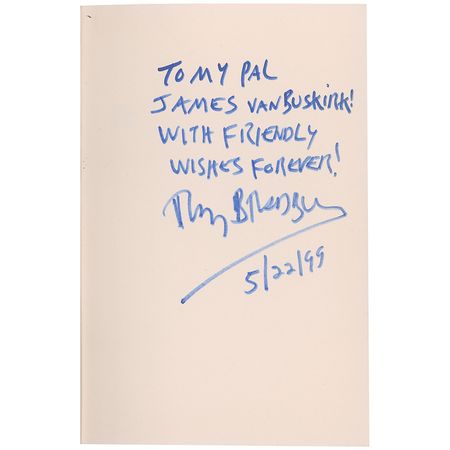 TO MY PAL
JAMES VANBUSKIRK!
WITH FRIENDLY
WISHES FOREVER!
Ray Bradbury
5/22/99